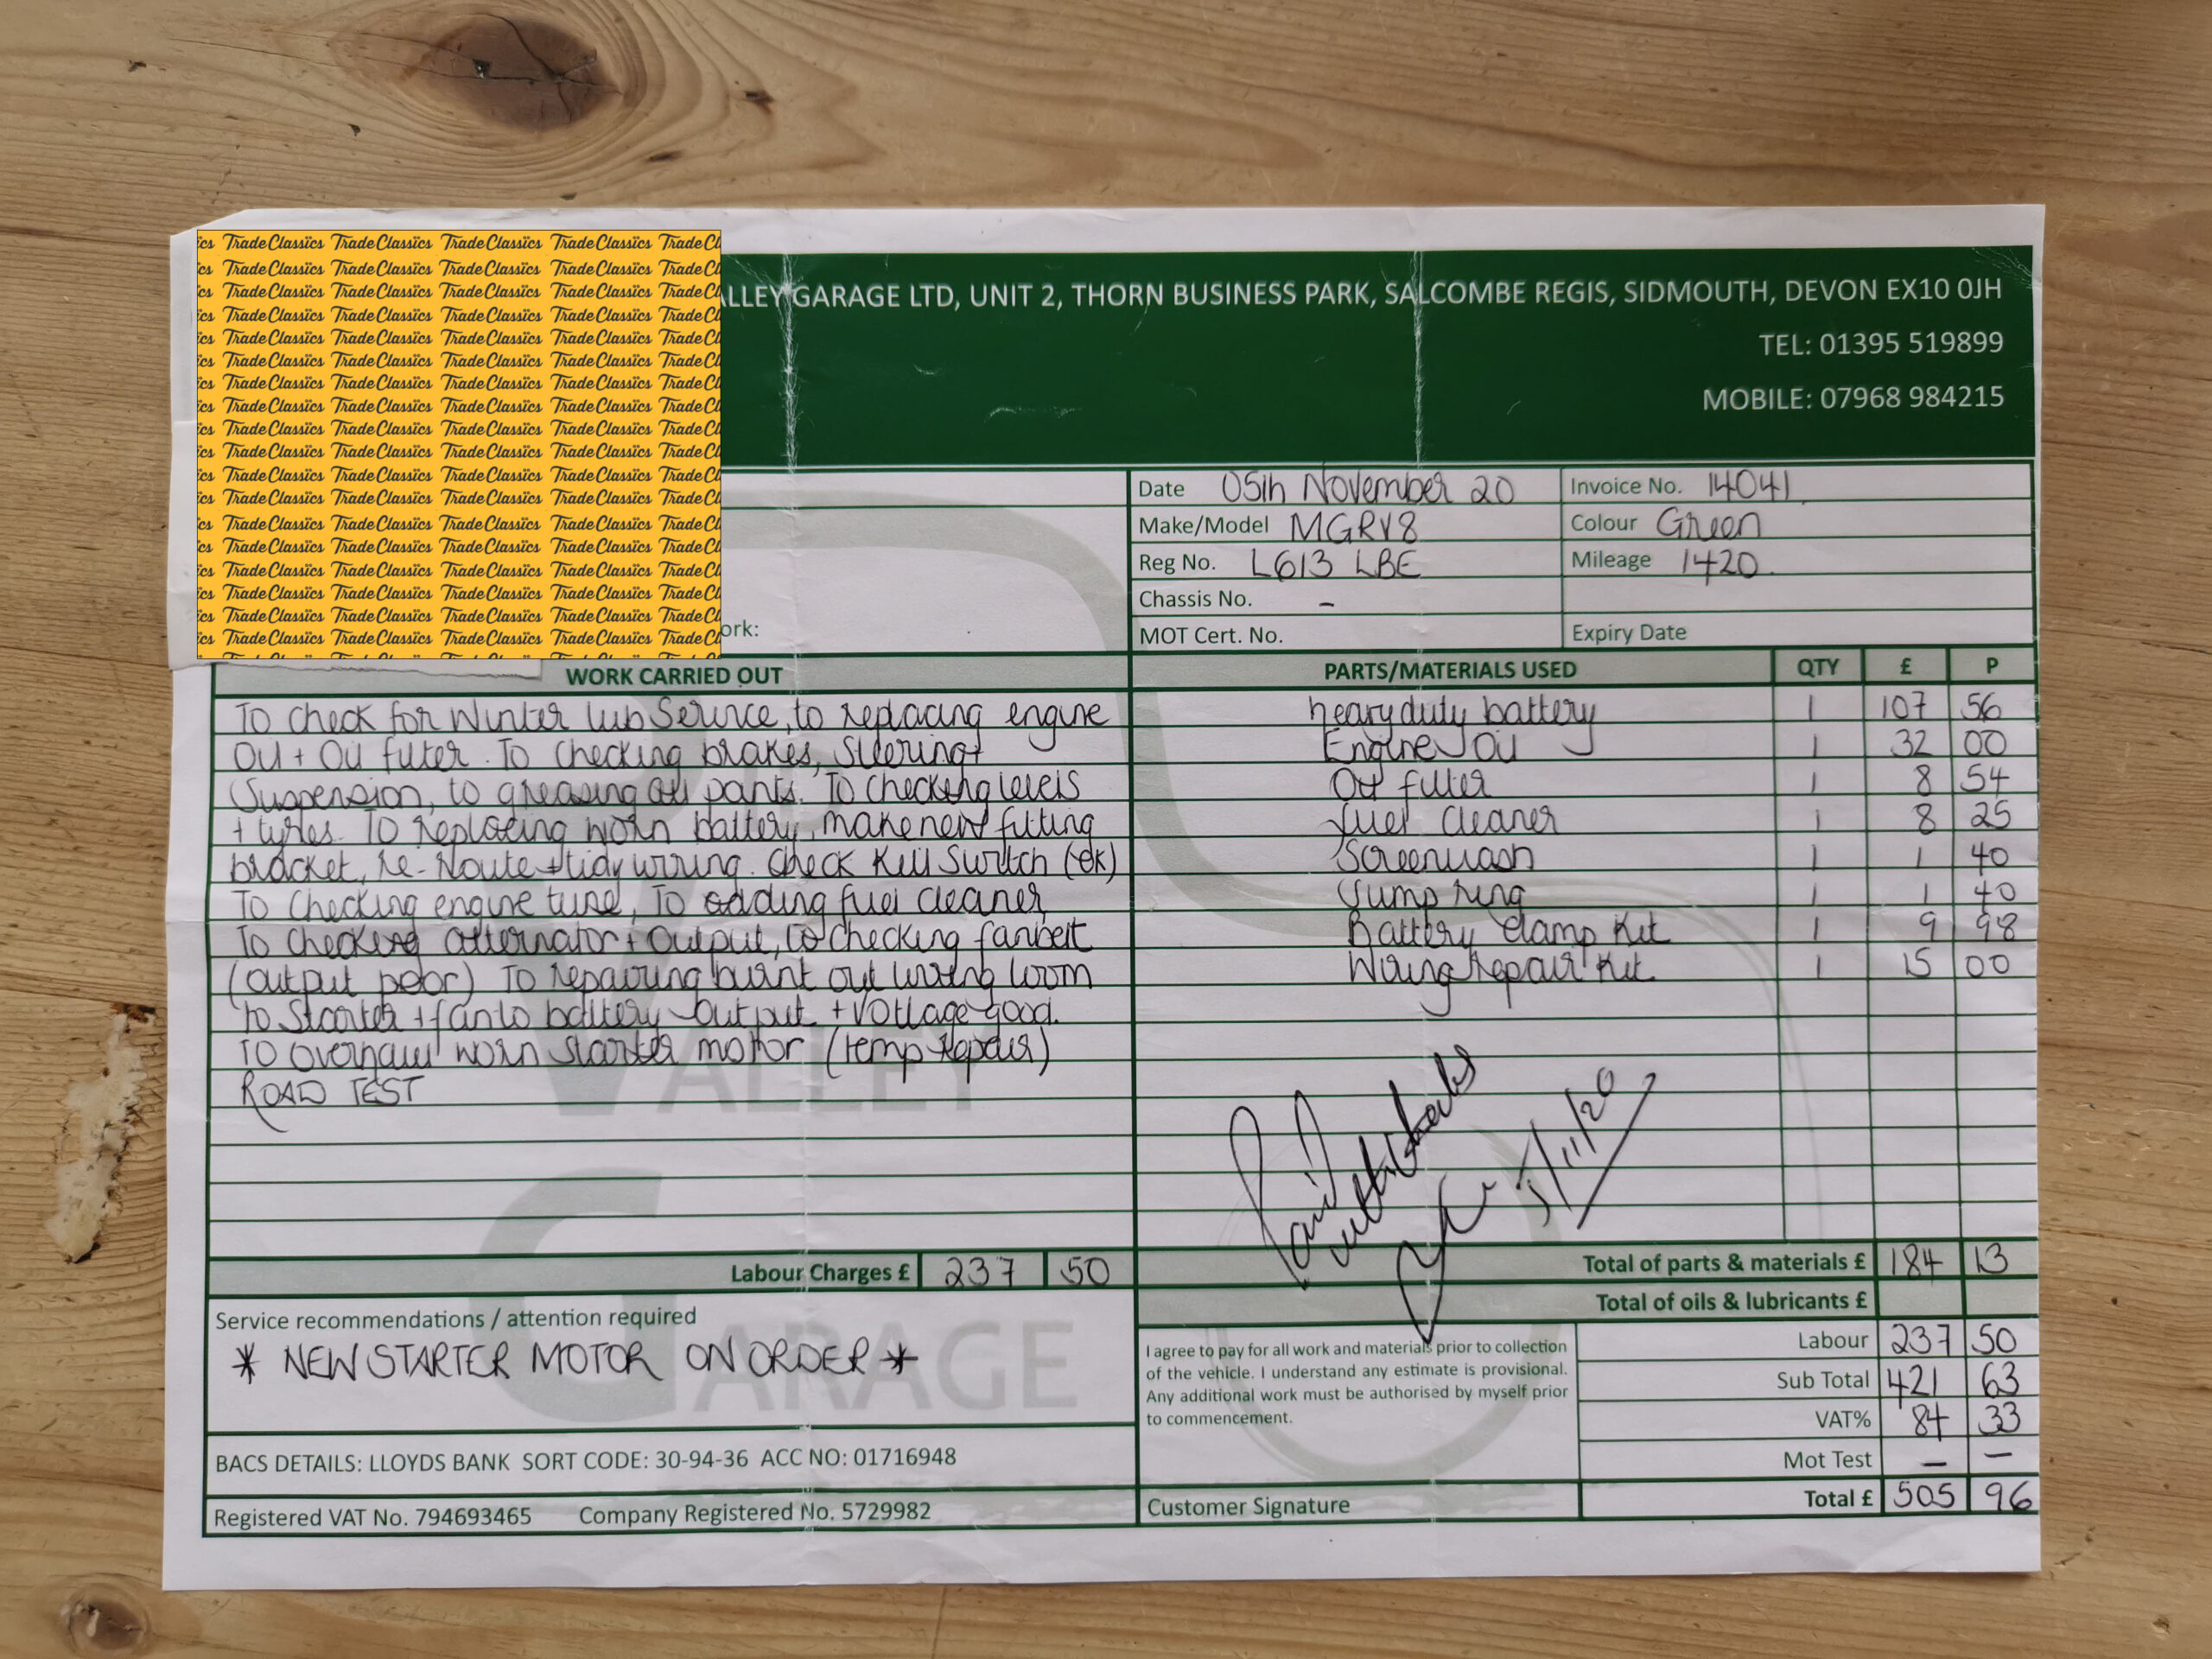 Trade Classics Trade Classics Trade Classics Trade Classics Trade Cl
LLEY GARAGE LTD, UNIT 2, THORN BUSINESS PARK, SALCOMBE REGIS, SIDMOUTH, DEVON EX10 0JH
TEL: 01395 519899
MOBILE: 07968 984215
Date 05th November 20 Invoice No. 14041
Make/Model MGRV8 Colour Green
Reg No. L613 LBE Mileage 1420
Chassis No. -
ork:
MOT Cert. No. Expiry Date
WORK CARRIED OUT PARTS/MATERIALS USED QTY £ P
To check for Winter lub Service, to replacing engine heavy duty battery 1 107 56
Oil + Oil filter. To checking brakes, Steering + Engine Oil 1 32 00
Suspension, to greasing all parts. To checking levels Oil filter 1 8 54
+ tyres. To replacing worn battery, make new fitting fuel cleaner 1 8 25
bracket, re-route + tidy wiring. Check Kill Switch (ok) Screenwash 1 1 40
To checking engine tune, To adding fuel cleaner Sump ring 1 1 40
To checking alternator + output, to checking fanbelt Battery clamp Kit 1 9 98
(output poor) To repairing burnt out wiring loom Wiring repair Kit 1 15 00
to Starter + fan to battery output + voltage good.
To overhaul worn starter motor (temp repair)
ROAD TEST
VALLEY
5/11/20
Labour Charges £ 237 50 Total of parts & materials £ 184 13
Total of oils & lubricants £
Service recommendations / attention required
* NEW STARTER MOTOR ON ORDER *
GARAGE
I agree to pay for all work and materials prior to collection
of the vehicle. I understand any estimate is provisional.
Any additional work must be authorised by myself prior
to commencement.
Labour 237 50
Sub Total 421 63
VAT% 84 33
Mot Test - -
BACS DETAILS: LLOYDS BANK SORT CODE: 30-94-36 ACC NO: 01716948
Customer Signature Total £ 505 96
Registered VAT No. 794693465 Company Registered No. 5729982